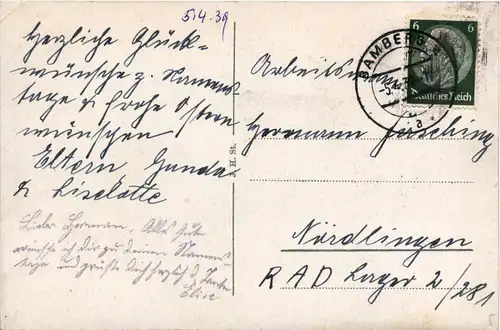 5.4.39
Herzliche Glück-
wünsche z. Namens
tage & frohe Ostern
wünschen
Eltern Gunda
& Liselotte
Lieber Herman, Alles Gute
wünsche ich Dir zu deinem Namens
tage und grüßt Dich herzlich d. Tante
Elise
H. St.
BAMBERG
a
6 6
Deutsches Reich
Arbeitsmann
Hermann Fasching
Nördlingen
RAD Lager 2/281